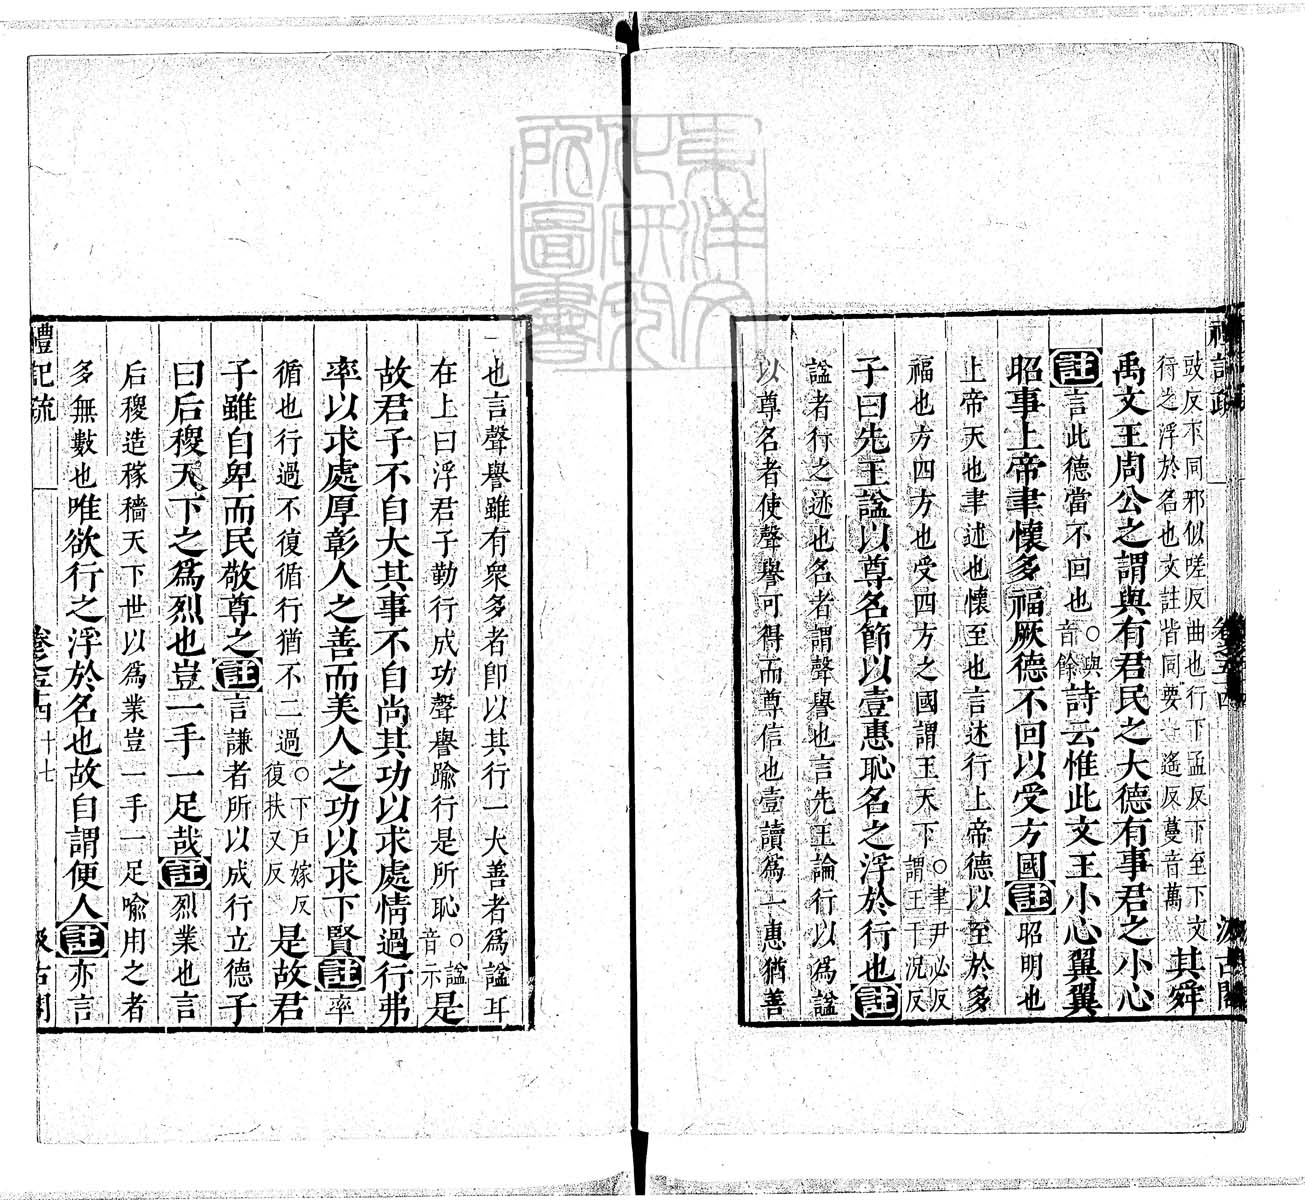 東洋文
化研究
所圖書
禮記疏 卷之五十四 汲古閣
豉反下同邪似嗟反曲也行下孟反下至下文
行之浮於名也文註皆同要遙反蔓音萬其舜
禹文王周公之謂與有君民之大德有事君之小心
註言此德當不回也○與音餘詩云惟此文王小心翼翼
昭事上帝聿懷多福厥德不回以受方國註昭明也
上帝天也聿述也懷至也言述行上帝德以至於多
福也方四方也受四方之國謂王天下○聿尹必反謂王于況反
子曰先王謚以尊名節以壹惠恥名之浮於行也註
謚者行之迹也名者謂聲譽也言先王論行以爲謚
以尊名者使聲譽可得而尊信也壹讀爲一惠猶善
也言聲譽雖有衆多者卽以其行一大善者爲謚耳
在上曰浮君子勤行成功聲譽踰行是所恥○謚音示是
故君子不自大其事不自尚其功以求處情過行弗
率以求處厚彰人之善而美人之功以求下賢註率
循也行過不復循行猶不二過○下戶嫁反復扶又反是故君
子雖自卑而民敬尊之註言謙者所以成行立德子
曰后稷天下之爲烈也豈一手一足哉註烈業也言
后稷造稼穡天下世以爲業豈一手一足喻用之者
多無數也唯欲行之浮於名也故自謂便人註亦言
禮記疏 卷之五十四 十七 汲古閣